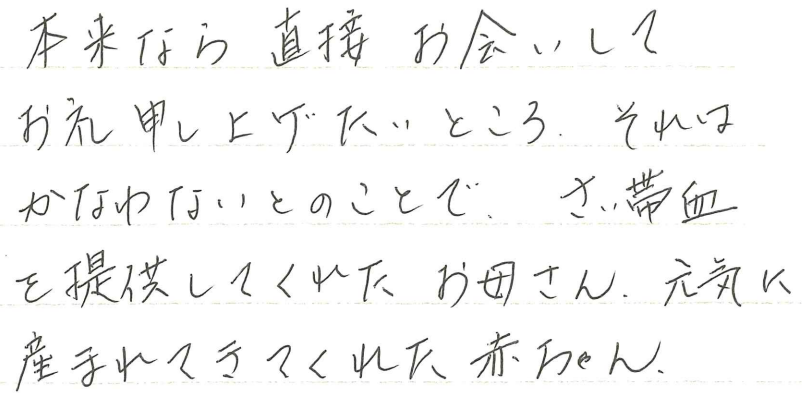 本来なら 直接 お会いして
お礼申し上げたいところ、それは
かなわないとのことで、さい帯血
を提供してくれた お母さん、元気に
産まれてきてくれた 赤ちゃん、